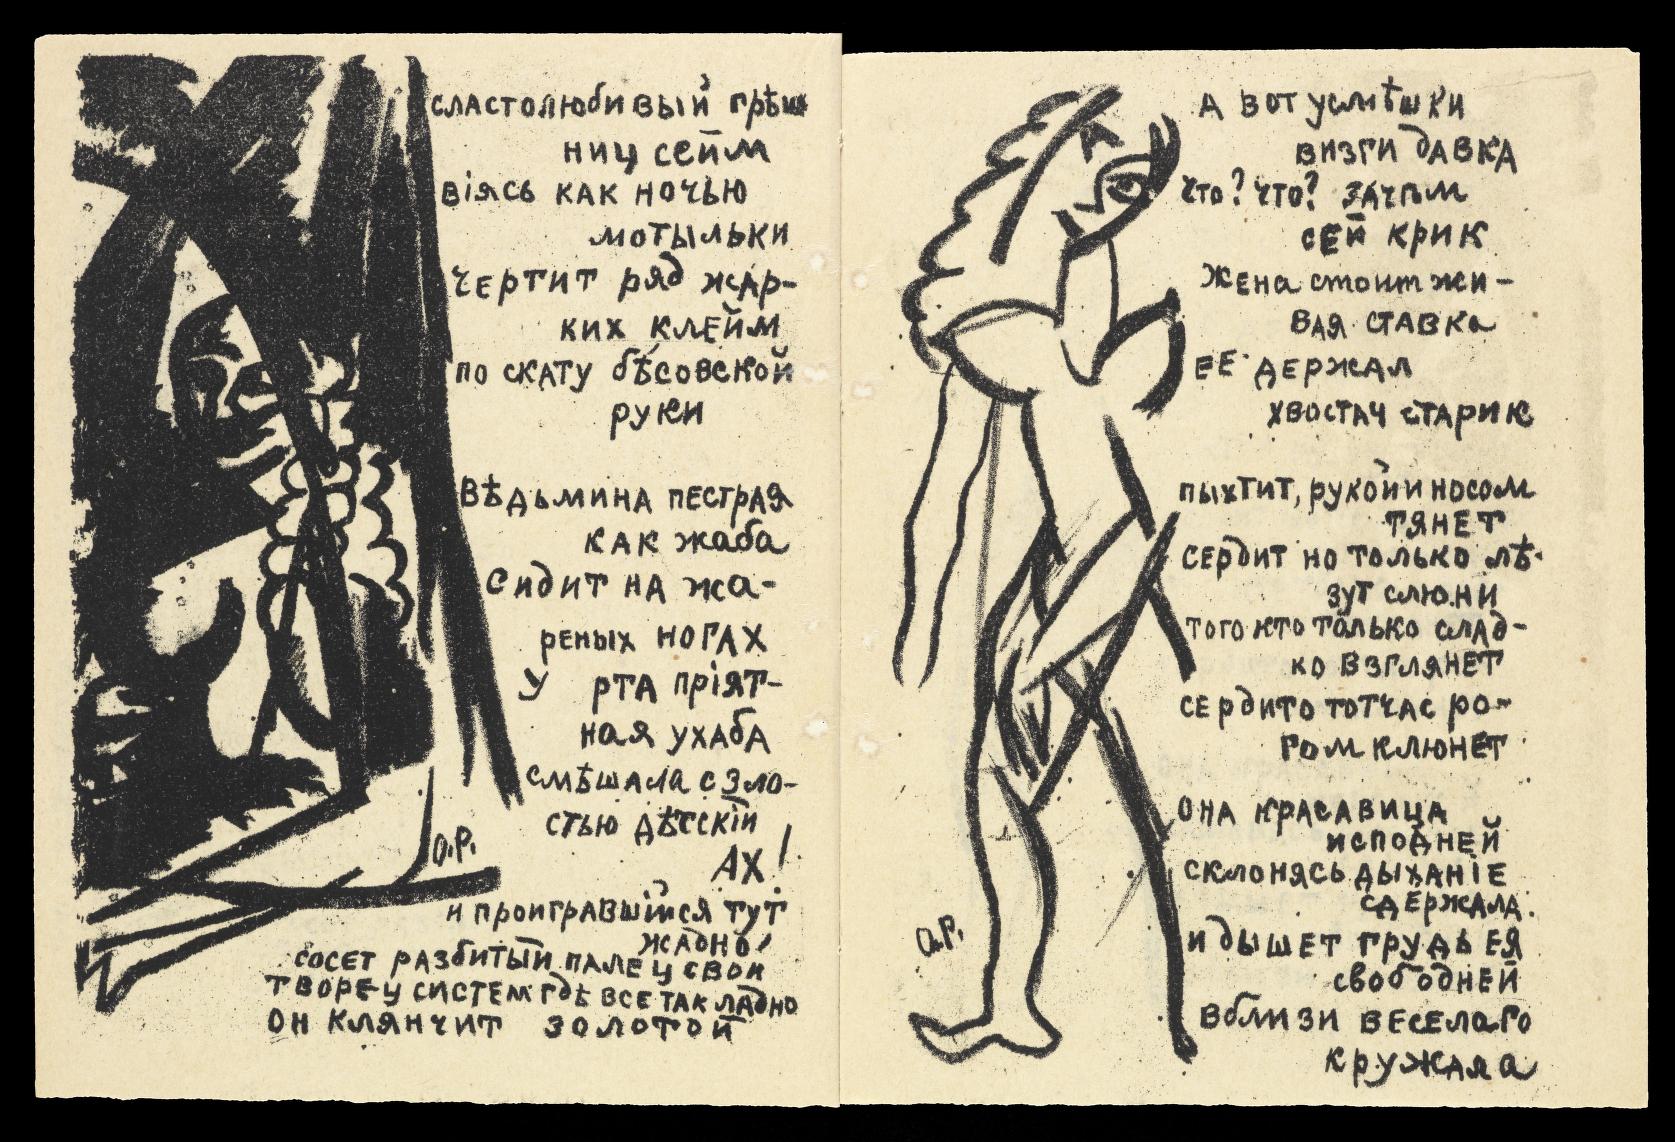 сластолюбивый грѣш
ниц сейм
віясь как ночью
мотыльки
чертит ряд жар-
ких клейм
по скату бѣсовской
руки
вѣдьмина пестрая
как жаба
сидит на жа-
реных ногах
у рта пріят-
ная ухаба
смѣшала с зло-
стью дѣтскій
Ах!
и проигравшійся тут
жадно
сосет разбитый палец свой
творец систем гдѣ все так ладно
он клянчит золотой
О.Р.
А вот усмѣшки
визги давка
что? что? зачѣм
сей крик
жена стоит жи-
вая ставка
ее держал
хвостач старик
пыхтит, рукой и носом
тянет
сердит но только лѣ-
зут слюни
того кто только слад-
ко взглянет
сердито тотчас ро-
гом клюнет
она красавица
исподней
склонясь дыханіе
сдержала.
и дышет грудь ея
свободней
вблизи веселаго
кружала
О.Р.